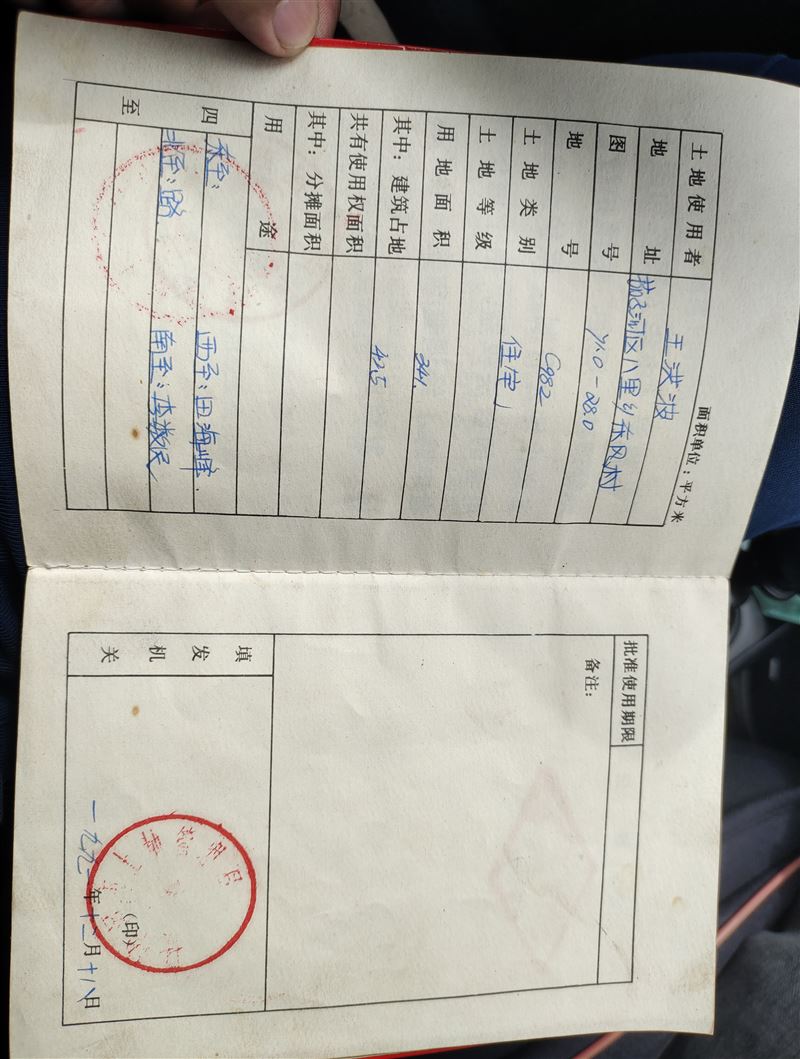 面积单位：平方米
土地使用者 王洪波
地址 茄子河区八里乡东风村
图号 YK0-28.0
地号 C982
土地类别 住宅
土地等级
用地面积 341.
其中：建筑占地 42.5
共有使用权面积
其中：分摊面积
用途
四至
东至： 西至：田海峰.
北至：路. 南至：李淑民
批准使用期限
备注：
填发机关
(印)
一九九一年十二月十八日